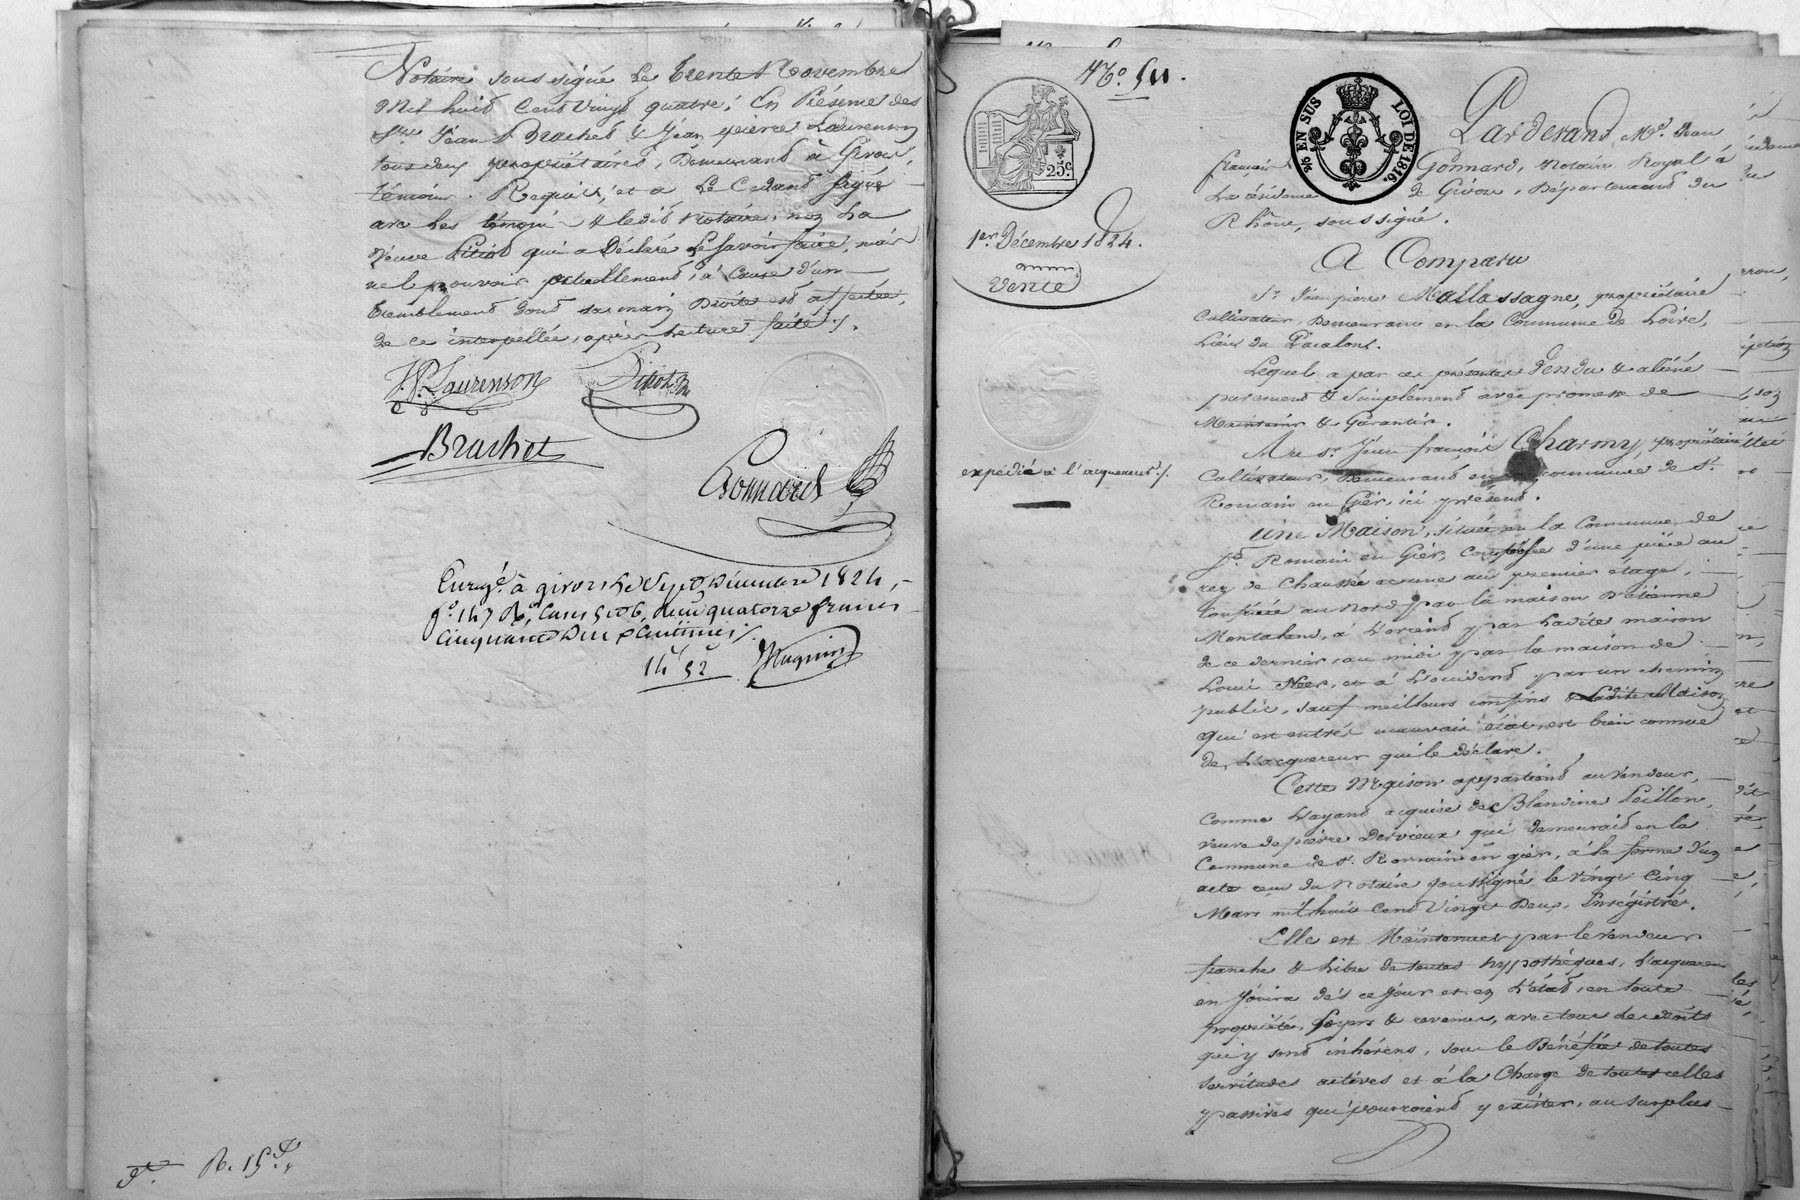 Notaire soussigné le trente Novembre
mil huit cent vingt quatre, en présence des
Srs Jean Brachet & Jean pierre Laurenson
tous deux propriétaires, demeurant à Givors,
témoins Requis, et a le Cedant signé
avec les témoins & ledit notaire, non la
Veuve Pitiot qui a déclaré le savoir faire, mais
ne le pouvoir actuellement, à cause d'un
tremblement dont sa main droite est affectée,
de ce interpellée, après lecture faite ./.
JP. Laurenson
Pitiot
Brachet
Gonnard
Enregé. à givors le Sept Décembre 1824,
fo. 147 Ro, Cases 5 et 6, reçu quatorze francs
Cinquante Deux Centimes ./.
14f 52c
Huguin
R. 15
No. 511.
25c.
25 EN SUS
LOI DE 1816.
1er Décembre 1824.
Vente
expédié à l'acquereur ./.
Pardevant Me. Jean
françois Gonnard, notaire Royal à
la résidence de Givors, Département du
Rhône, soussigné.
A Comparu
Sr. Jeanpierre Mallassagne, propriétaire
Cultivateur, demeurant en la Commune de Loire,
Lieu du
Lequel a par ces présentes Vendu & aliéné
purement & simplement avec promesse de
Maintenir & Garantir.
A Me sr. Jean françois Charmy, propriétaire
Cultivateur, demeurant en commune de St.
Romain en Gier, ici présent.
Une Maison, située en la Commune de
St. Romain en Gier, composée d'une pièce au
rez de chaussée et une au premier étage,
Confinée au Nord par la maison d'étienne
Montaland, à l'orient par ladite maison
de ce dernier, au midi par la maison de
Louis Neer, et à l'occident par un chemin
public, sauf meilleurs confins & Ladite Maison
qui est en très mauvais état, est bien connue
de l'acquereur qui le déclare.
Cette Maison appartient au Vendeur,
comme l'ayant acquise de Blandine Peillon,
veuve de pierre Dervieux qui demeurait en la
Commune de St. Romain en gier, à la forme d'un
acte reçu du Notaire soussigné le vingt Cinq
Mars mil huit Cent Vingt Deux, Enrégistré.
Elle est Maintenue par le Vendeur
franche & libre de toutes hypothèques, l'acquereur
en jouira dès ce jour et en l'état, en toute
propriété, loyers & revenus, avec tous les droits
qui y sont inhérens, sous le Bénéfice de toutes
servitudes actives et à la Charge de toutes celles
passives qui pourroient y exister, au surplus